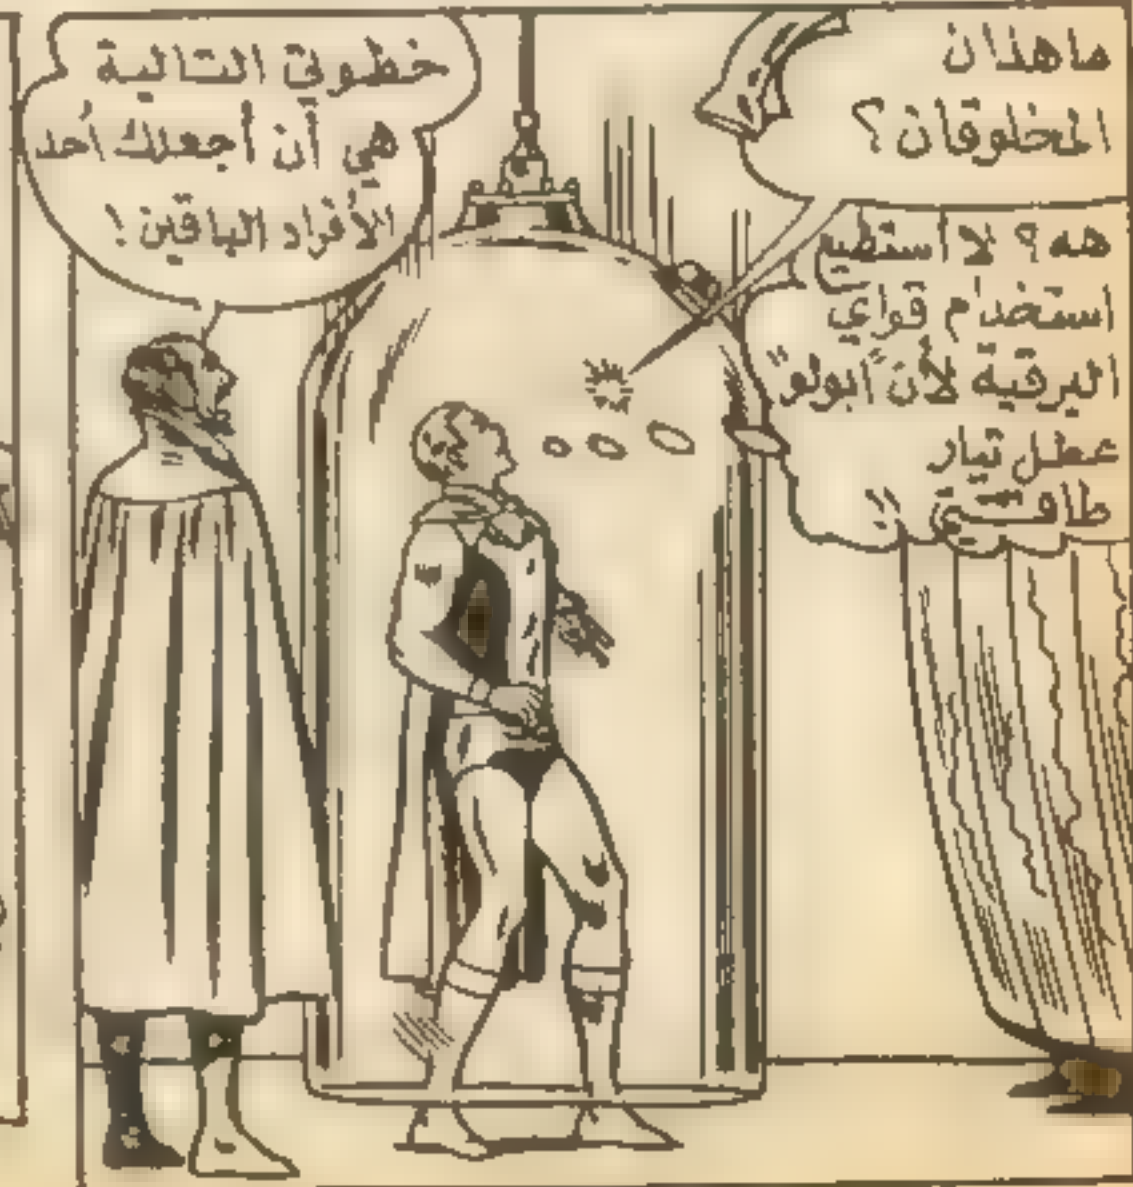 ماهذان
المخلوقان؟
هه؟ لا أستطيع
استخدام قواي
البرقية لأن "أبولو"
عطل تيار
طاقتي !!
خطوتي التالية
هي أن أجعلك أحد
الأفراد الباقين!